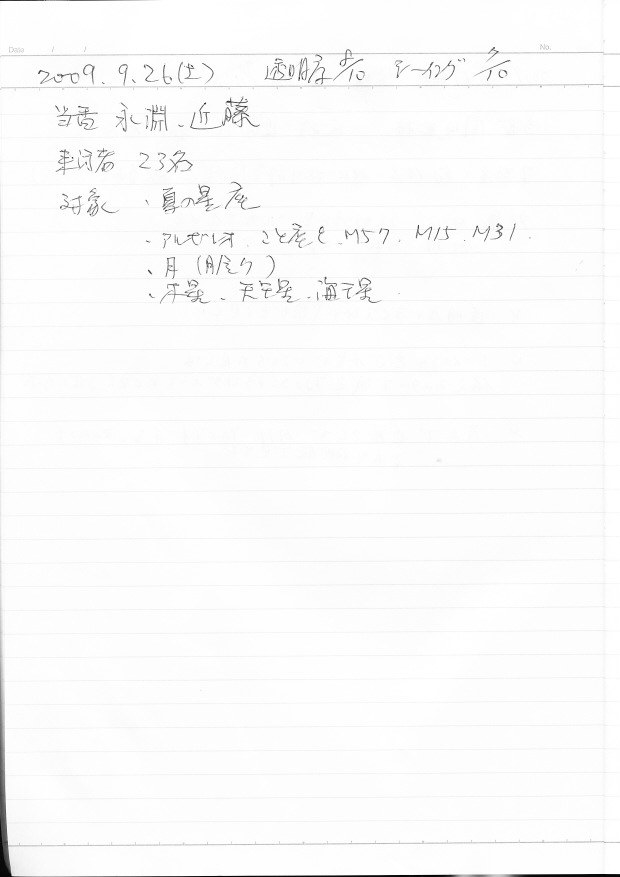 Date / / No.
2009.9.26(土) 透明度 8/10 シーイング 7/10
当番 永淵、近藤
来訪者 23名
対象 ・夏の星座
・アルビレオ、こと座ε、M57、M15、M31.
・月(月齢7)
・木星、天王星、海王星.